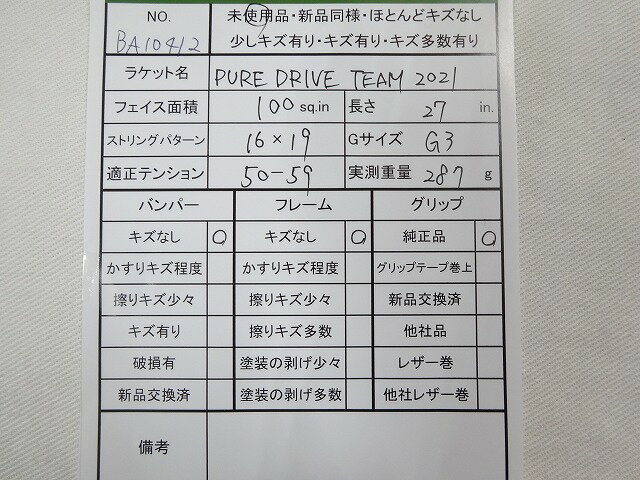 NO. 未使用品・新品同様・ほとんどキズなし
BA10412 少しキズ有り・キズ有り・キズ多数有り
ラケット名 PURE DRIVE TEAM 2021
フェイス面積 100 sq.in 長さ 27 in.
ストリングパターン 16×19 Gサイズ G3
適正テンション 50-59 実測重量 287 g
バンパー フレーム グリップ
キズなし ○ キズなし ○ 純正品 ○
かすりキズ程度 かすりキズ程度 グリップテープ巻上
擦りキズ少々 擦りキズ少々 新品交換済
キズ有り 擦りキズ多数 他社品
破損有 塗装の剥げ少々 レザー巻
新品交換済 塗装の剥げ多数 他社レザー巻
備考